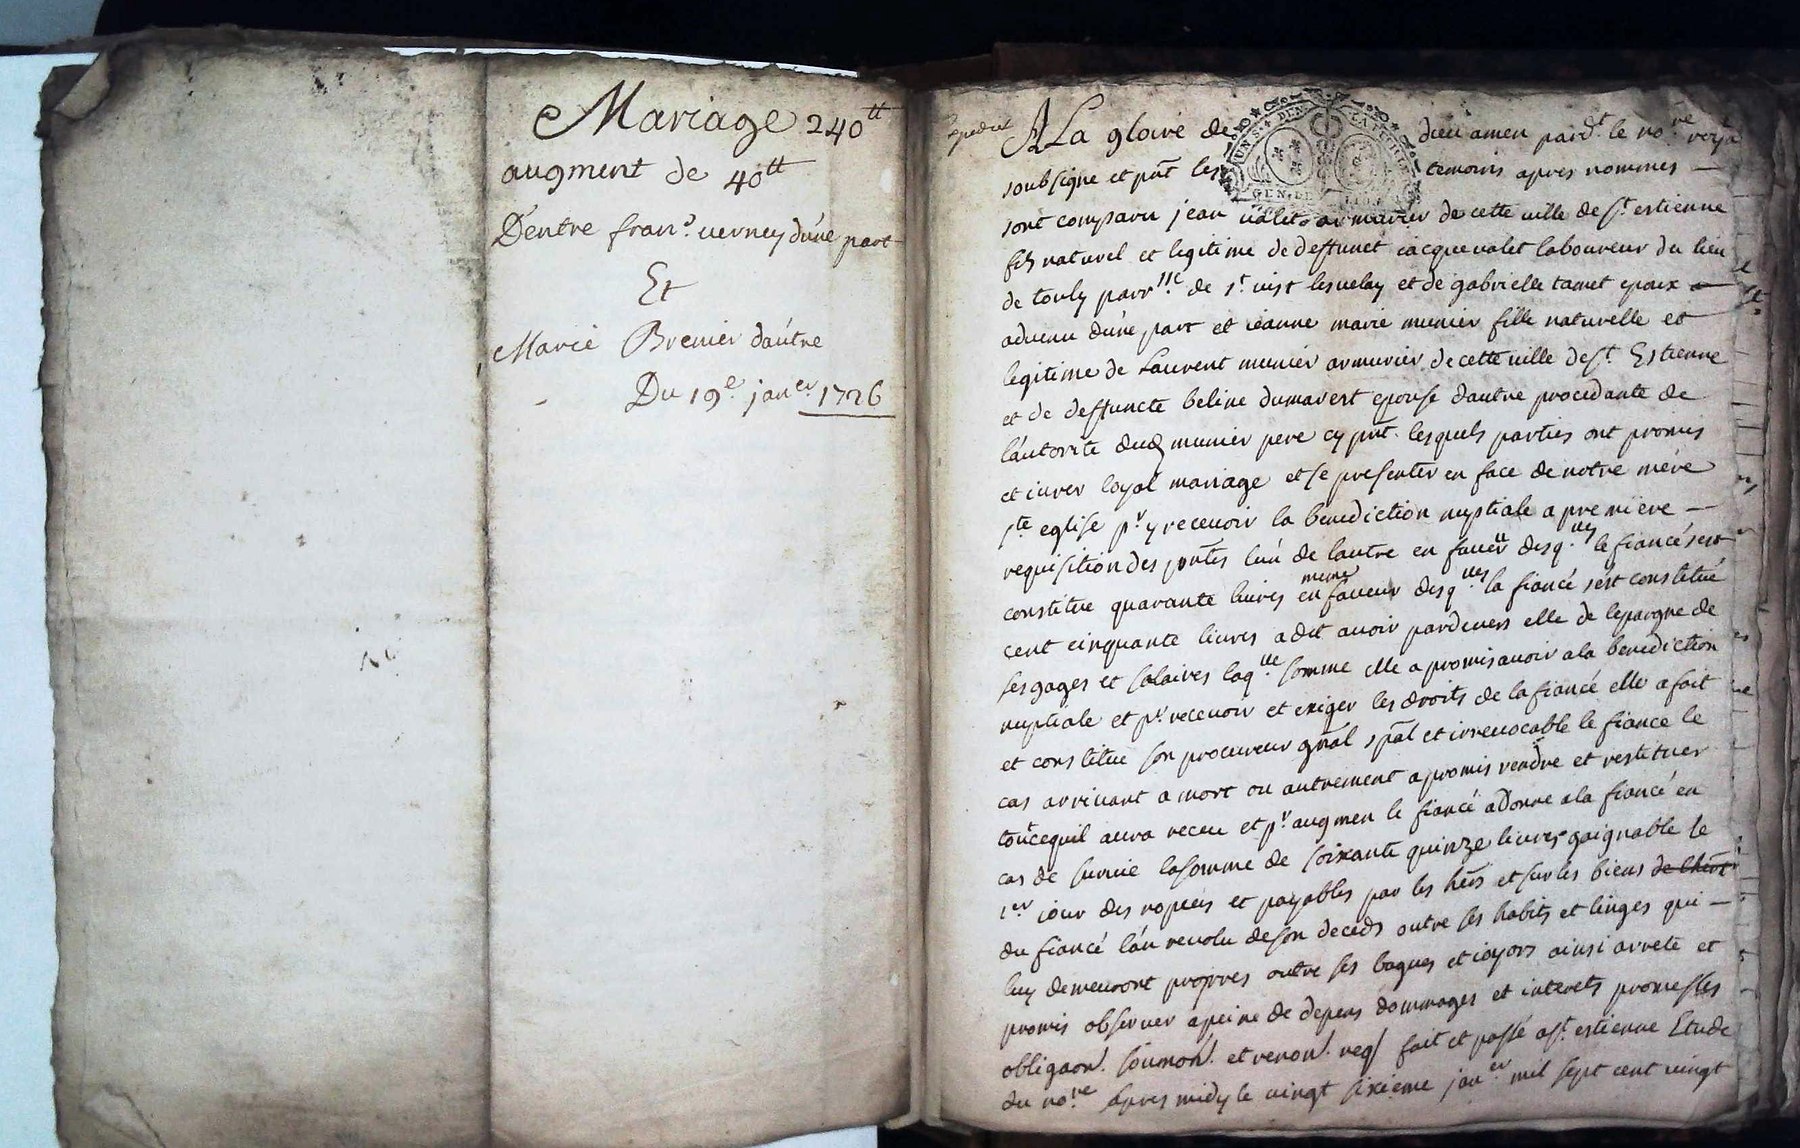 Mariage 240tt
augment de 40tt
Dentre fran.s verney d'une part
Et
Marie Brenier dáutre
Du 19.e jan.er 1726
expedié
A La gloire de dieu amen pard.t le no.re royal
soubsigne et pnt les temoins apres nommes
sont comparu jean valet armurier de cette ville de St. estienne
fils naturel et legitime de deffunct iacque valet laboureur du lieu
de parr.lle de st. iust les velay et de gabrielle tamet epoux
advenu d'une part et ieanne marie munier fille naturelle et
legitime de Laurent munier armurier de cette ville de St. Estienne
et de deffuncte beline dumarest epouse dautre procedante de
láutorité dud munier pere cy pnt. lesquels parties ont promis
et iurer loyal mariage et se presenter en face de notre mere
ste eglise p.r y recevoir la benediction nuptiale a premiere
requisition des pntes lún de lautre en faveur desq.lles le fiancé sest
constitue quarante livres en meme faveur desq.lles la fiancé sést constitué
cent cinquante livres a dit avoir pardevers elle de lepargne de
ses gages et salaires laq.lle somme elle a promis avoir a la benediction
nuptiale et p.r recevoir et exiger les droits de la fiancé elle a fait
et constitue son procureur gnal spal et irrevocable le fiance le
cas arrivant a mort ou autrement a promis rendre et restituer
tout ce quil aura receu et p.r augmen le fiancé a donne a la fiancé en
cas de survie la somme de soixante quinze livres gaignable le
1.er iour des nopces et payables par les hers et sur les biens de
du fiancé lán revolu de son deceds outre ses habits et linges qui
luy demeuront propres outre ses bagues et ioyaux ainsi arreté et
promis observer a peine de depens dommages et interets promesses
obligaon. soumon. et renon. req fait et passé a St. estienne Etude
du no.re apres midy le vingt sixieme jan.er mil sept cent vingt